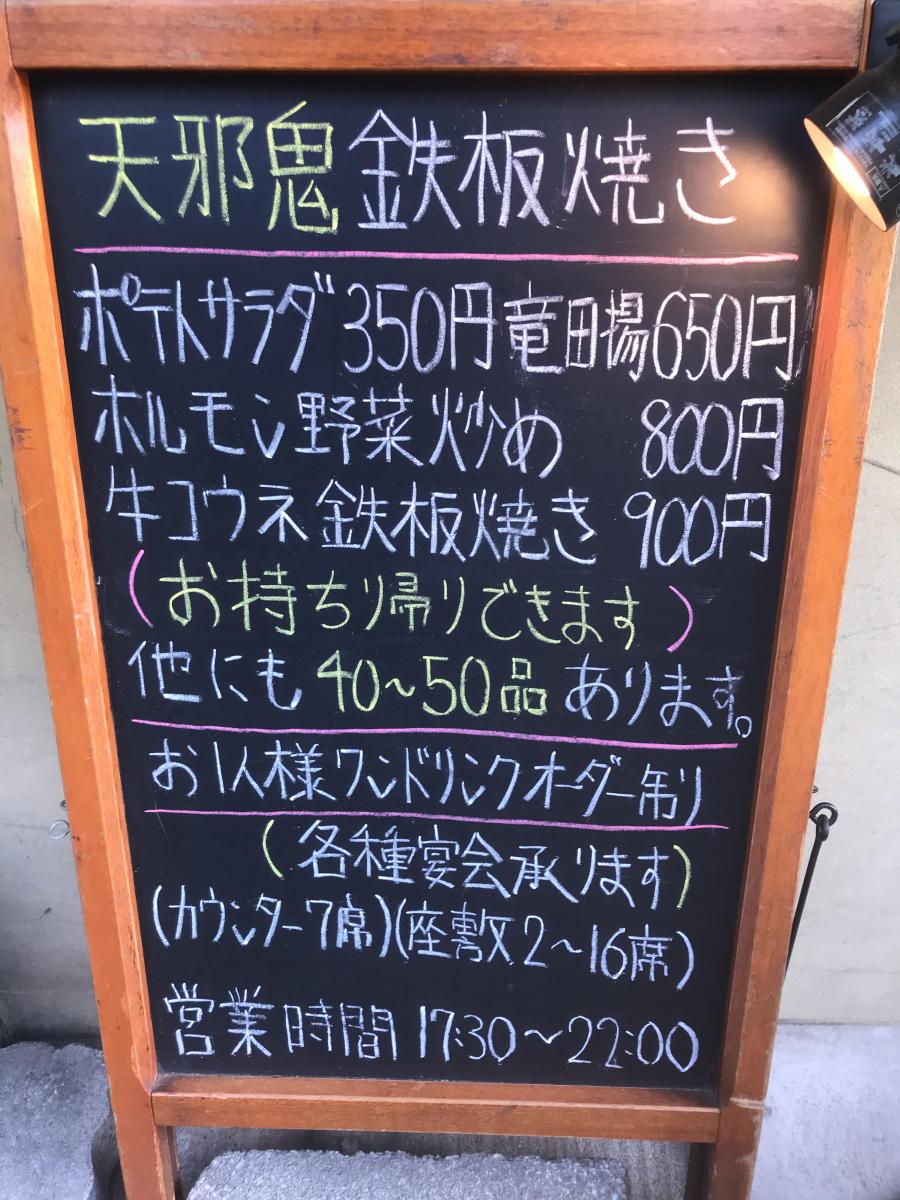 天邪鬼 鉄板焼き
ポテトサラダ 350円 竜田揚 650円
ホルモン野菜炒め 800円
牛コウネ鉄板焼き 900円
(お持ち帰りできます)
他にも 40~50品 あります。
お1人様ワンドリンクオーダー制
(各種宴会承ります)
(カウンター7席)(座敷2~16席)
営業時間 17:30~22:00